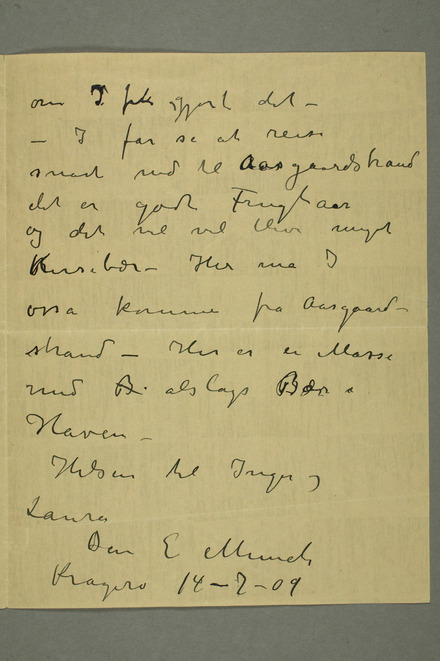 om I fik gjort det –
– I får se at reise
snart ned til Aasgaardstrand
det er godt Frugtaar
og det vil vel blive meget
Kirsebær – Her må I
også komme fra Aasgaard-
strand – Her er en Masse
med B alslags Bær i
Haven –
Hilsen til Inger og
Laura
Den E Munch
Kragerø 14–7–09